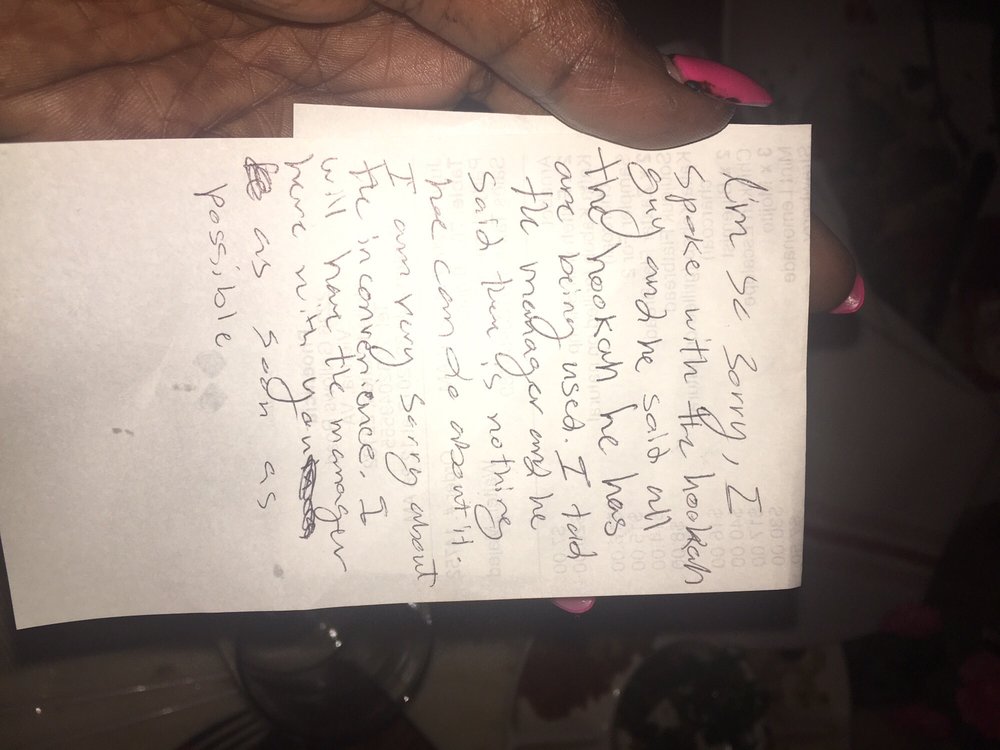 I'm so sorry, I
spoke with the hookah
guy and he said all
the hookah he has
are being used. I told
the manager and he
said there is nothing
he can do about it.
I am very sorry about
the inconvenience. I
will have the manager
here with you
as soon as
possible